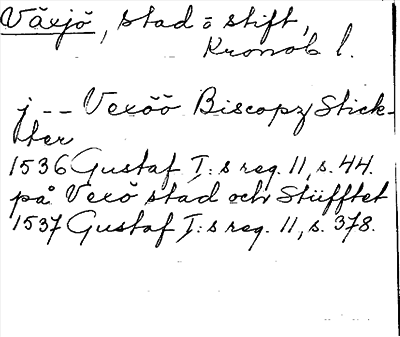 Växjö, stad o stift,
Kronob l.
j -- Vexöö Biscopz Stick-
ter
1536 Gustaf I:s reg. 11, s. 44.
på Vexö stad och Stüfftet
1537 Gustaf I:s reg. 11, s. 378.